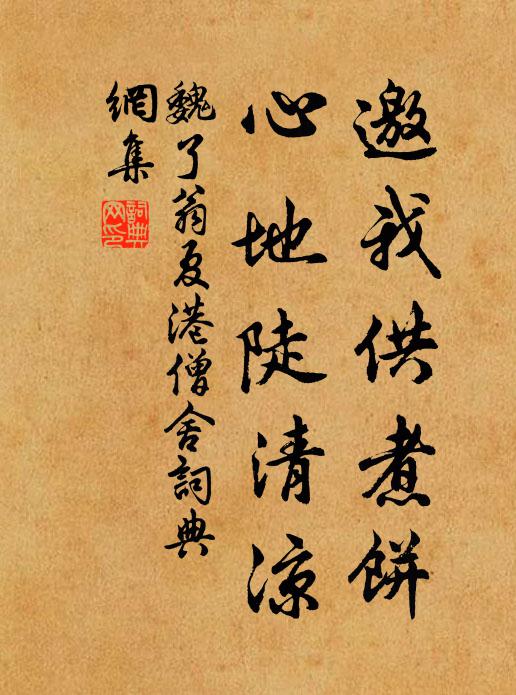 邀我供煮餅
心地陡清涼
魏了翁夏港僧舍詞典
網集
詞典
网印